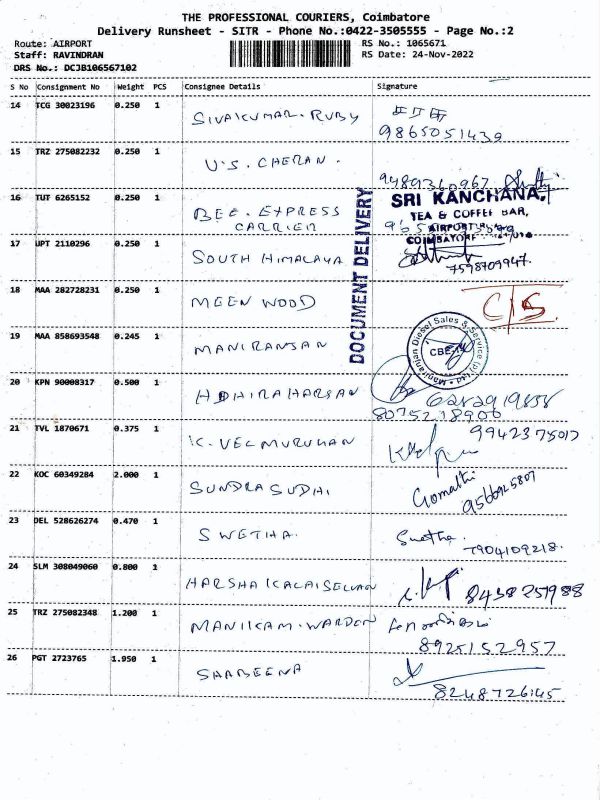 THE PROFESSIONAL COURIERS, Coimbatore
Delivery Runsheet - SITR - Phone No.:0422-3505555 - Page No.:2
Route: AIRPORT
RS No.: 1065671
Staff: RAVINDRAN
RS Date: 24-Nov-2022
DRS No.: DCJB106567102
S No Consignment No Weight PCS Consignee Details Signature
14 TCG 30023196 0.250 1 SIVAKUMAR. RUBY
9865051439
15 TRZ 275082232 0.250 1 U.S. CHERAN.
9489360967
DOCUMENT DELIVERY
SRI KANCHANA,
TEA & COFFEE BAR,
AIRPORT
COIMBATORE
16 TUT 6265152 0.250 1 BEE. EXPRESS
CARRIER
17 UPT 2110296 0.250 1 SOUTH HIMALAYA
7598709947.
18 MAA 282728231 0.250 1 MEEN WOOD C/S
19 MAA 858693548 0.245 1 MANIRANJAN
Maniranjan Diesel Sales & Service (P) Ltd
CBE-14
20 KPN 90008317 0.500 1 HDHIRAHARSAN
6282919838
8075218900
21 TVL 1870671 0.375 1 K. VELMURUHAN
9942375017
22 KOC 60349284 2.000 1 SUNDRA SUDHI Gomathi
9566925807
23 DEL 528626274 0.470 1 SWETHA. Swetha.
7904109218.
24 SLM 308049060 0.800 1 HARSHA KALAISELVAN
8438257988
25 TRZ 275082348 1.200 1 MANIKAM. WARDEN
8925152957
26 PGT 2723765 1.950 1 SHABEENA
8248726145